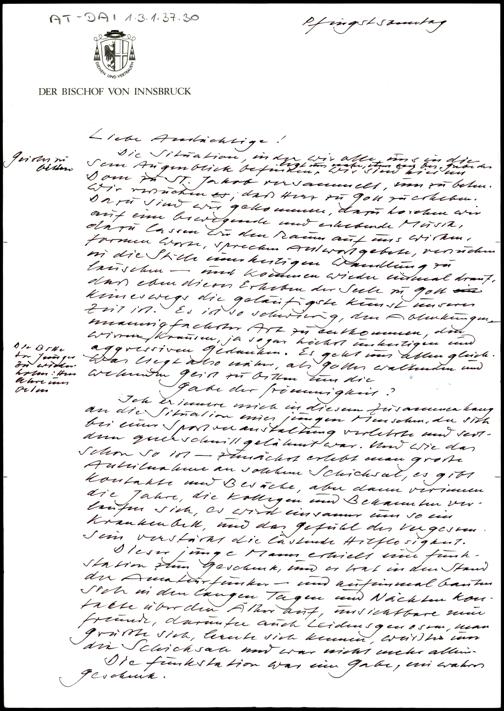 AT-DAI 1.3.1.37.30
Pfingstsonntag
DER BISCHOF VON INNSBRUCK
Liebe Andächtige!
Die Situation, in der wir alle uns in die-
sem Augenblick befinden, wir sind hier im
Dom zu St. Jakob versammelt, um zu beten.
Wir versuchen es, das Herz zu Gott zu erheben.
Dazu sind wir gekommen, dazu horchen wir
auf eine bewegende und erhebende Musik,
dazu lassen wir den Raum auf uns wirken,
formen Worte, sprechen Antwortgebete, versuchen
in die Stille innerhalb Wandlung zu
lauschen – und kommen wieder einmal drauf,
daß eben dieses Erheben der Seele zu Gott
keineswegs die geläufigste Kunst unserer
Zeit ist. Es ist so schwierig, den Ablenkungen
mannigfachster Art zu entkommen, den
wirren, krausen, ja sogar höchst
aggressiven Gedanken. Es geht uns allen gleich.
Was liegt also näher, als Gottes waltenden und
wehenden Geist zu bitten um die
Gabe der Frömmigkeit?
Die Bitte
der Jünger
zu wieder-
holen: Herr
lehre uns
beten
Ich erinnere mich in diesem Zusammenhang
an die Situation eines jungen Menschen, der sich
bei einer Sportveranstaltung verletzte und seit-
dem querschnittgelähmt war. Und wie das
schon so ist – zunächst erlebt man große
Anteilnahme an solchem Schicksal, es gibt
Kontakte und Besuche, aber dann verrinnen
die Jahre, die Kollegen und Bekannten ver-
laufen sich, es wird einsamer um so ein
Krankenbett, und das Gefühl des Vergessen-
seins verstärkt die lastende Hilflosigkeit.
Dieser junge Mann erhielt eine Funk-
station zum Geschenk, und er trat in den Stand
der Amateurfunker – und auf einmal bauten
sich in den langen Tagen und Nächten Kon-
takte über den Äther auf, unsichtbare neue
Freunde, darunter auch Leidensgenossen, man
grüßte sich, lernte sich kennen, wußte um
die Schicksale und war nicht mehr allein.
Die Funkstation war eine Gabe, ein wahres
Geschenk.